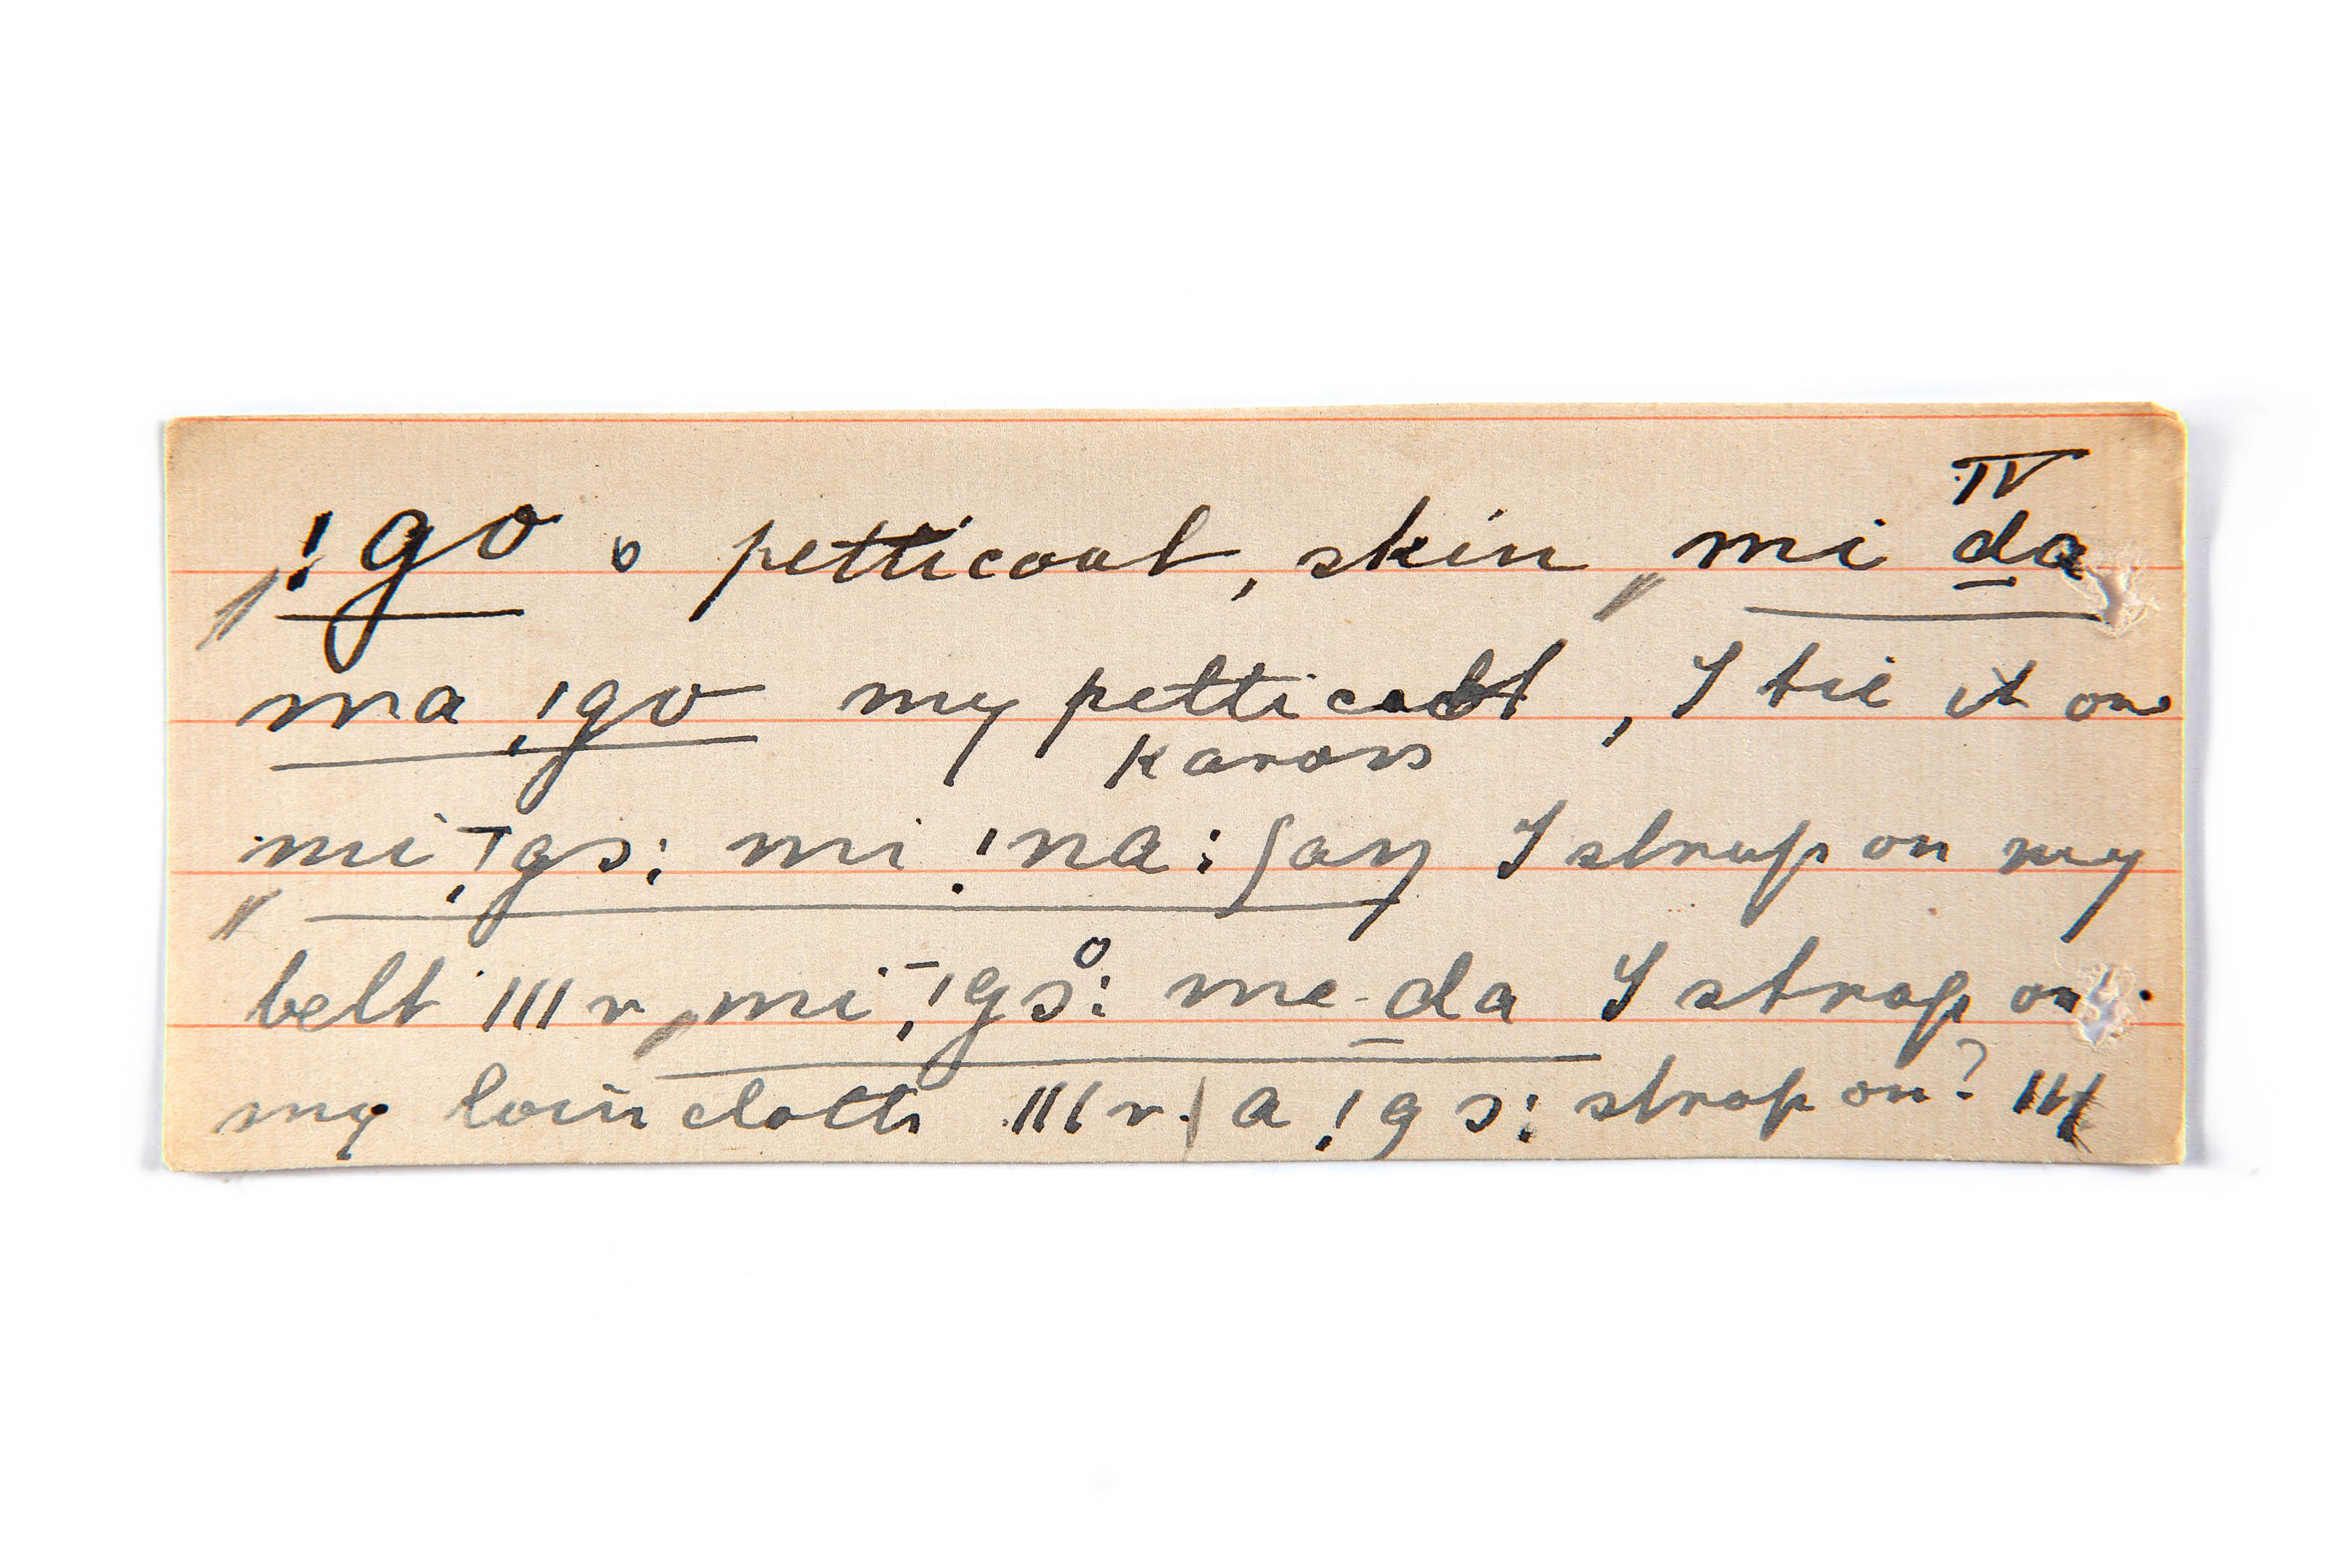 IV
!go o petticoat, skin, mi da
ma !go my petticoat, I tie it on
kaross
mi !gɔ: mi !na:ʃaŋ I strap on my
belt III r, mi !gɔ̊: me da I strap on
my loin cloth III r. | a !gɔ: strap on? III